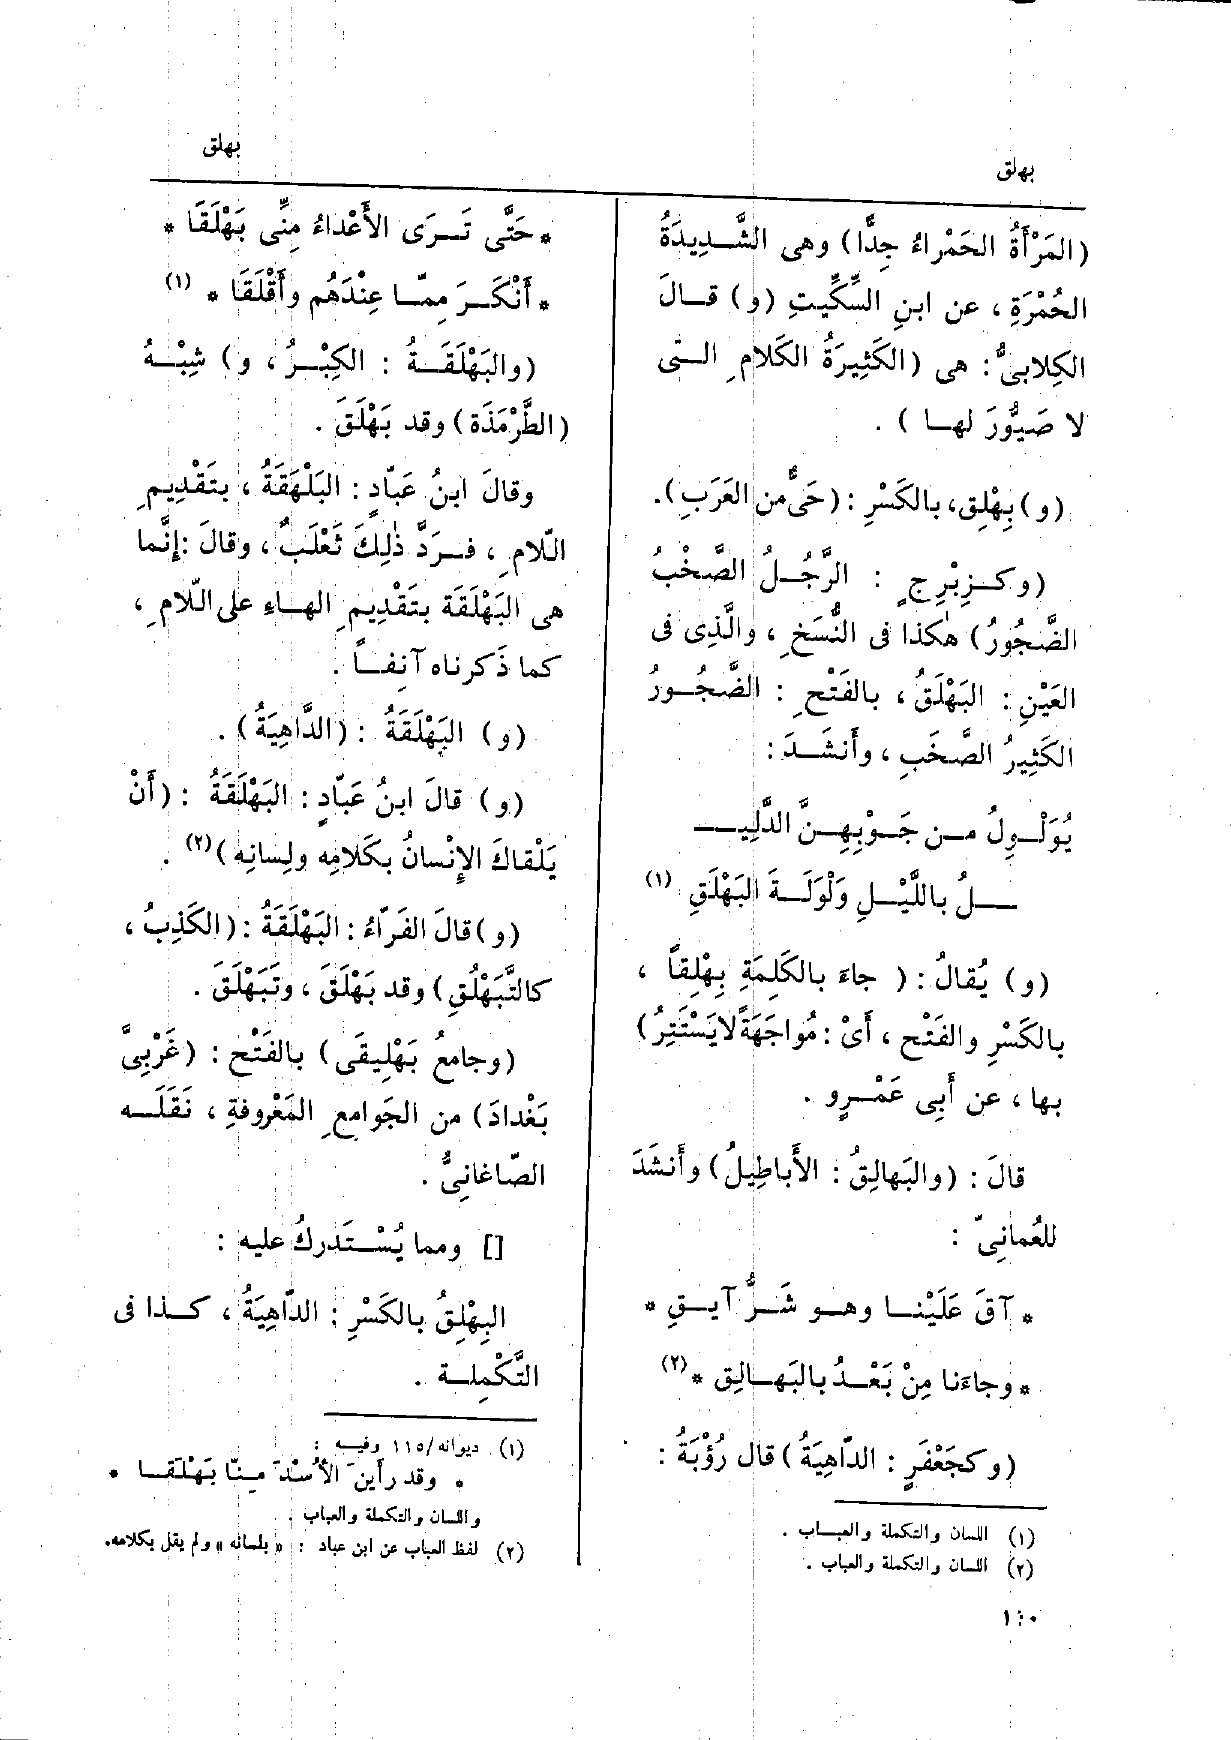 بهلق
بهلق
(المَرْأَةُ الحَمْراءُ جِدًّا) وهى الشَّدِيدَةُ
الحُمْرَةِ ، عن ابنِ السِّكِّيتِ (و) قالَ
الكِلابىُّ: هى (الكَثِيرَةُ الكَلامِ التى
لا صَيُّورَ لها ) .
(و) بِهْلِق، بالكَسْرِ : (حَىٌّ من العَرَبِ).
(وكزِبْرِجٍ : الرَّجُلُ الصَّخْبُ
الضَّجُورُ) هٰكذا فى النُّسَخِ ، والَّذِى فى
العَيْنِ : البَهْلَقُ ، بالفَتْحِ : الضَّجُورُ
الكَثِيرُ الصَّخَبِ ، وأَنشَدَ :
يُوَلْوِلُ من جَوْبِهِنَّ الدَّلِيـ
ـلُ باللَّيْلِ وَلْوَلَةَ البَهْلَقِ (١)
(و) يُقالُ : ( جاءَ بالكَلِمَةِ بِهْلِقاً ،
بالكَسْرِ والفَتْح ، أَىْ : مُواجَهَةً لا يَسْتَتِرُ)
بها ، عن أَبِى عَمْرٍو .
قالَ : (والبَهالِقُ : الأَباطِيلُ) وأَنشَدَ
للعُمانِىّ :
* آقَ عَلَيْنا وهو شَرُّ آيِقِ *
* وجاءَنا مِنْ بَعْدُ بالبَهالِقِ * (٢)
(وكجَعْفَرٍ : الدّاهِيَةُ) قال رُؤْبَةُ :
(١) اللسان والتكملة والعباب .
(٢) اللسان والتكملة والعباب .
* حَتَّى تَرَى الأَعْداءُ مِنِّى بَهْلَقَا *
* أَنْكَرَ مِمّا عِنْدَهُم وأَقْلَقَا * (١)
(والبَهْلَقَةُ : الكِبْرُ ، و) شِبْهُ
(الطَّرْمَذَة) وقد بَهْلَقَ .
وقالَ ابنُ عَبّادٍ : البَلْهَقَةُ ، بتَقْدِيمِ
اللّامِ ، فرَدَّ ذٰلِكَ ثَعْلَبٌ ، وقالَ : إِنَّما
هى البَهْلَقَة بتَقْدِيمِ الهاءِ على اللّامِ ،
كما ذَكرناه آنِفاً .
(و) البَهْلَقَةُ : (الدَّاهِيَةُ) .
(و) قالَ ابنُ عَبّادٍ : البَهْلَقَةُ : (أَنْ
يَلْقاكَ الإِنْسانُ بكَلامِه ولِسانِه )(٢) .
(و) قالَ الفَرّاءُ : البَهْلَقَةُ : (الكَذِبُ ،
كالتَّبَهْلُقِ) وقد بَهْلَقَ ، وتَبَهْلَقَ .
(وجامعُ بَهْلِيقَى) بالفَتْح : (غَرْبِىَّ
بَغْدادَ) من الجَوامعِ المَعْرُوفةِ ، نَقَلَه
الصّاغانِىُّ .
[] ومما يُسْتَدركُ عليه :
البِهْلِقُ بالكَسْرِ : الدّاهِيَةُ ، كذا فى
التَّكْمِلة .
(١) ديوانه/١١٥ وفيه :
* وقد رأين الأُسْدَ مِنّا بَهْلَقَا *
واللسان والتكملة والعباب .
(٢) لفظ العباب عن ابن عباد : « بلسانه » ولم يقل بكلامه.